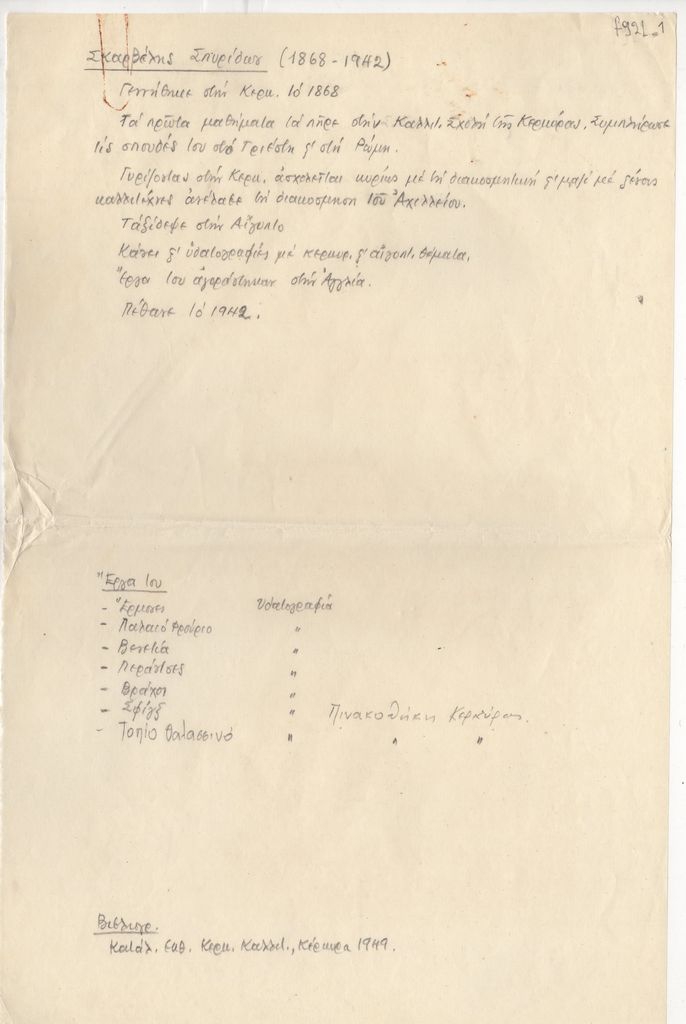 f921.1
Σκαρβέλης Σπυρίδων (1868-1942)
Γεννήθηκε στήν Κερκ. τό 1868
Τά πρῶτα μαθήματα τά πῆρε στήν Καλλιτ. Σχολή τῆς Κερκύρας. Συμπλήρωσε
τίς σπουδές του στό Τριέστη ϗ στή Ρώμη.
Γυρίζοντας στήν Κερκ. ἀσχολεῖται κυρίως μέ τή διακοσμητική ϗ μαζί μέ ξένους
καλλιτέχνες ἀνέλαβε τή διακόσμηση τοῦ Ἀχιλλείου.
Ταξίδεψε στήν Αἴγυπτο
Κάνει ϗ ὑδατογραφίες μέ κερκυρ. ϗ αἰγυπτ. θέματα.
Ἔργα του ἀγοράστηκαν στήν Ἀγγλία.
Πέθανε τό 1942.
Ἔργα του
- Ἔρμονες Υδατογραφία
- Παλαιό Φρούριο "
- Βενετία "
- Περάντσες "
- Βράχοι "
- Σφίγξ " Πινακοθήκη Κερκύρας.
- Τοπίο θαλασσινό " " "
Βιβλιογρ.
Κατάλ. Εκθ. Κερκ. Καλλιτ., Κέρκυρα 1949.